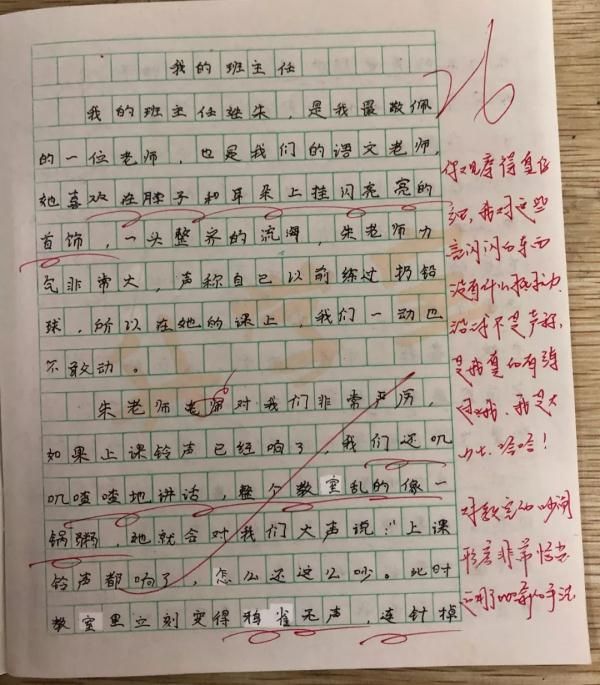 我的班主任
26
我的班主任姓朱，是我最敬佩
的一位老师，也是我们的语文老师，
她喜欢在脖子和耳朵上挂闪亮亮的
首饰，一头整齐的流海，朱老师力
气非常大，声称自己以前练过扔铅
球，所以在她的课上，我们一动也
不敢动。
朱老师老师对我们非常严厉，
如果上课铃声已经响了，我们还叽
叽喳喳地讲话，整个教室乱的像一
锅粥，她就会对我们大声说："上课
铃声都响了，怎么还这么吵。此时
教室里立刻变得鸦雀无声，连针掉
你观察得真仔
我对这些
闪闪的东西
没有什么抵抗力
不是声称，
是我真的有练
过，我
哈哈！
对教室的吵闹
形容非常恰当
运用了比喻的手法